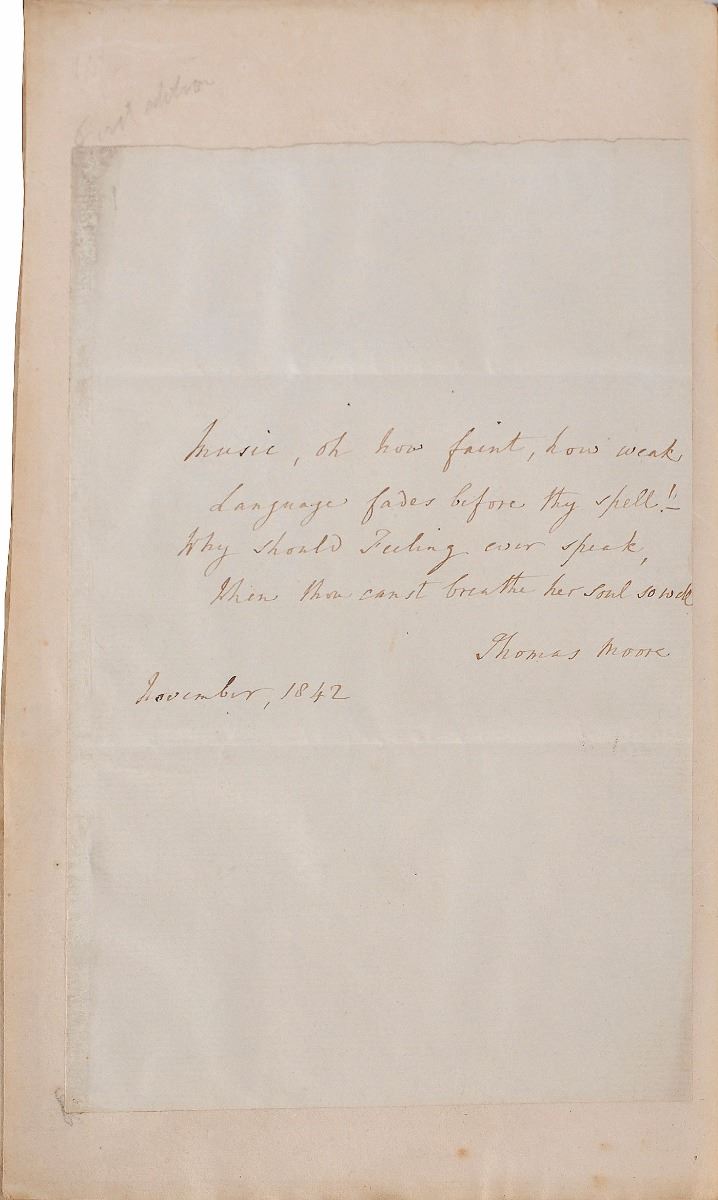 First edition
Music, oh how faint, how weak
Language fades before thy spell!!–
Why should Feeling ever speak,
When thou canst breathe her soul so well
Thomas Moore
November, 1842